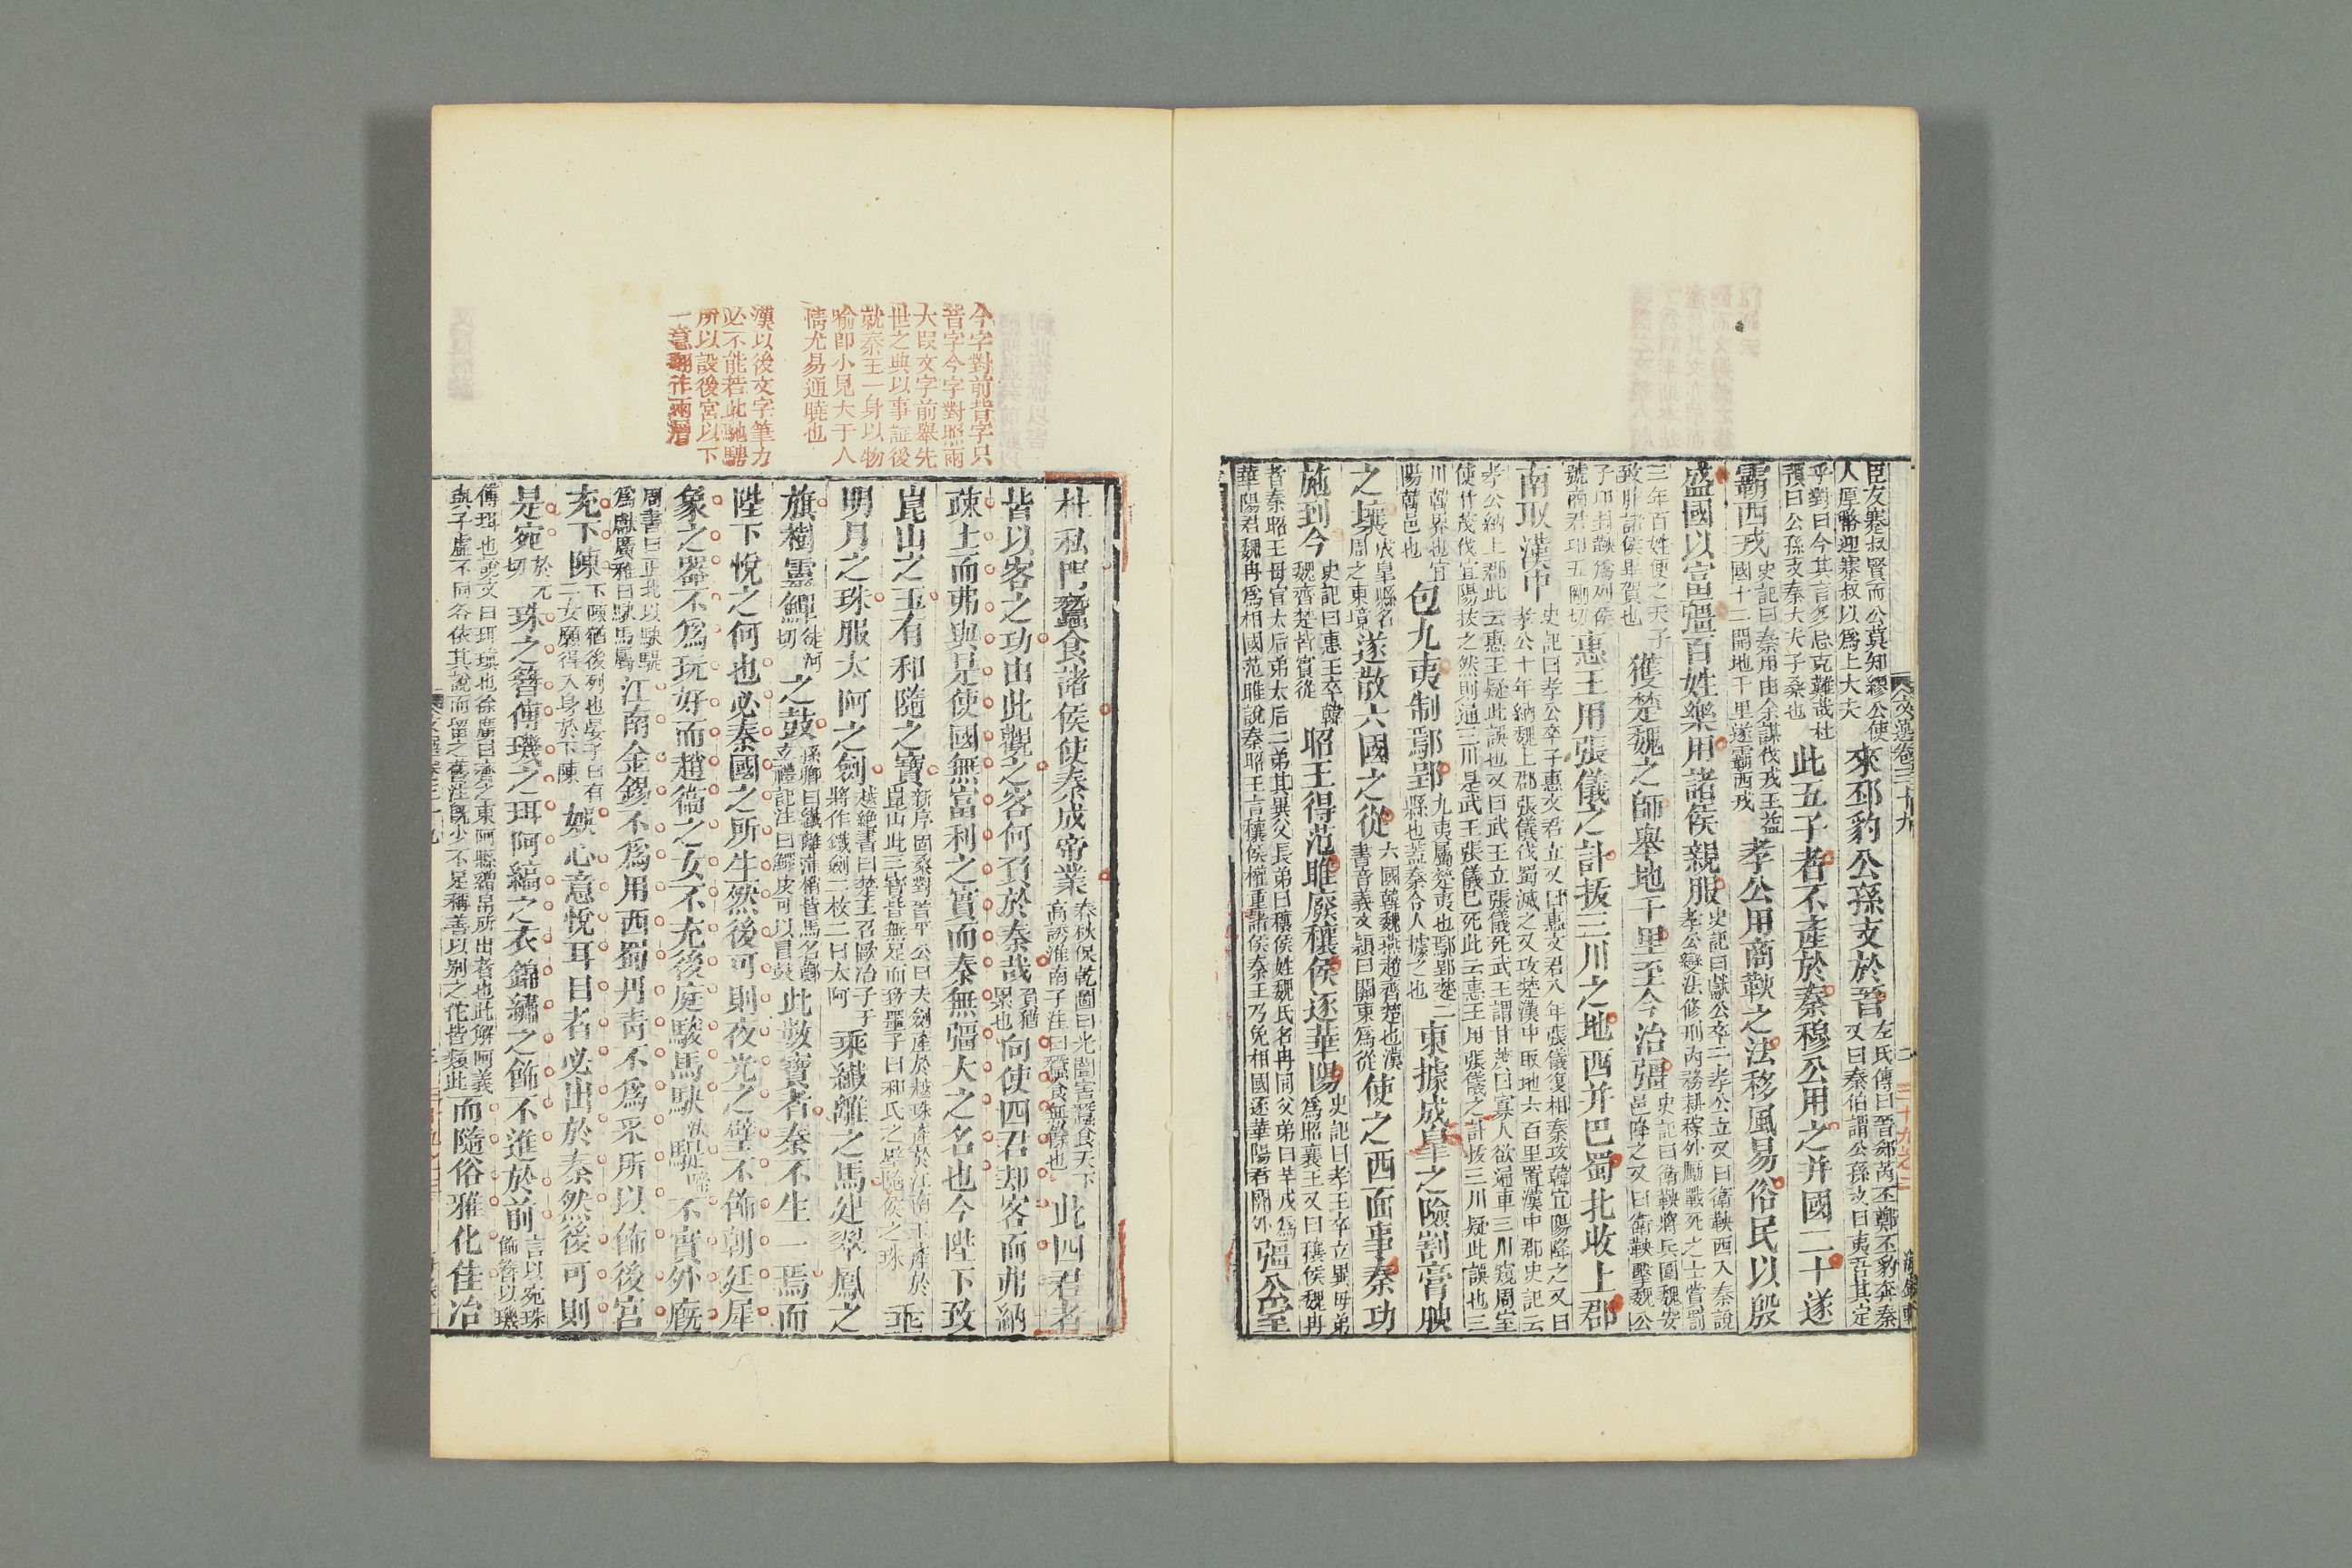 臣友蹇叔賢而公莫知繆公使
人厚幣迎蹇叔以爲上大夫
來邳豹公孫支於晉
左氏傳曰晉郤芮丕鄭丕豹奔秦
又曰秦伯謂公孫支曰夷吾其定
乎對曰今其言多忌克難哉杜
預曰公孫支秦大夫子桑也
此五子者不產於秦穆公用之并國二十遂
霸西戎
史記曰秦用由余謀伐戎王益
國十二開地千里遂霸西戎
孝公用商鞅之法移風易俗民以殷
盛國以富彊百姓樂用諸侯親服
史記曰獻公卒子孝公立又曰衛鞅西入秦說
孝公變法修刑內務耕稼外勵戰死之士賞罰
三年百姓便之天子
致胙諸侯畢賀也
獲楚魏之師舉地千里至今治彊
史記曰衛鞅將兵圍魏安
邑降之又曰衛鞅擊魏公
子卬封鞅爲列侯
號商君卬五剛切
惠王用張儀之計拔三川之地西并巴蜀北收上郡
南取漢中
史記曰孝公卒子惠文君立又曰惠文君八年張儀復相秦攻韓宜陽降之又曰
孝公十年納魏上郡張儀伐蜀滅之又攻楚漢中取地六百里置漢中郡史記云
孝公納上郡此云惠王疑此誤也又曰武王立張儀死武王謂甘茂曰寡人欲通車三川窺周室
使甘茂伐宜陽拔之然則通三川是武王張儀已死此云惠王用張儀之計拔三川疑此誤也三
川韓界也宜
陽韓邑也
包九夷制鄢郢
九夷屬楚夷也鄢郢楚二
縣也蓋秦令人據之也
東據成皋之險割膏腴
之壤
成皋縣名
周之東境
遂散六國之從
六國韓魏燕趙齊楚也漢
書音義文穎曰關東爲從
使之西面事秦功
施到今
史記曰惠王卒韓
魏齊楚皆賓從
昭王得范雎廢穰侯逐華陽
史記曰孝王卒立異母弟
爲昭襄王又曰穰侯魏冉
者秦昭王母宣太后弟太后二弟其異父長弟曰穰侯姓魏氏名冉同父弟曰羋戎爲
華陽君魏冉爲相國范雎說秦昭王言穰侯權重諸侯秦王乃免相國逐華陽君關外
彊公室
文選卷三十九
二
海錄軒
今字對前皆字只
皆字今字對照兩
大段文字前舉先
世之典以事証後
就秦王一身以物
喻即小見大于人
情尤易通曉也
漢以後文字筆力
必不能若此馳騁
所以設後宮以下
一意翻作兩層
杜私門蠶食諸侯使秦成帝業
春秋保乾圖曰光闇害蠶食天下
高誘淮南子注曰蠶食無餘也
此四君者
皆以客之功由此觀之客何負於秦哉
負猶
累也
向使四君却客而弗納
疎士而弗與是使國無富利之實而秦無彊大之名也今陛下致
崑山之玉有和隨之寶
新序固桑對晉平公曰夫劍產於越珠產於江南玉產於
崑山此三寶皆無足而致墨子曰和氏之璧隨侯之珠
垂
明月之珠服太阿之劍
越絕書曰楚王召歐冶子干
將作鐵劍二枚二曰太阿
乘纖離之馬建翠鳳之
旗樹靈鼉
徒河
切
之鼓
孫卿曰纖離蒲梢皆馬名鄭
玄禮記注曰鼉皮可以冒鼓
此數寶者秦不生一焉而
陛下悅之何也必秦國之所生然後可則夜光之璧不飾朝廷犀
象之器不爲玩好而趙衛之女不充後庭駿馬駃
決
騠
啼
不實外廐
周書曰正北以駃騠
爲獻廣雅曰駃馬屬
江南金錫不爲用西蜀丹青不爲采所以飾後宮
充下陳
下陳猶後列也晏子曰有
二女願得入身於下陳
娛心意悅耳目者必出於秦然後可則
是宛
於元
切
珠之簪傅璣之珥阿縞之衣錦繡之飾不進於前
言以宛珠
飾簪以璣
傅珥也說文曰珥瑱也徐廣曰齊之東阿縣繒帛所出者也此解阿義
與子虛不同各依其說而留之舊注既少不足稱善以別之他皆類此
而隨俗雅化佳冶